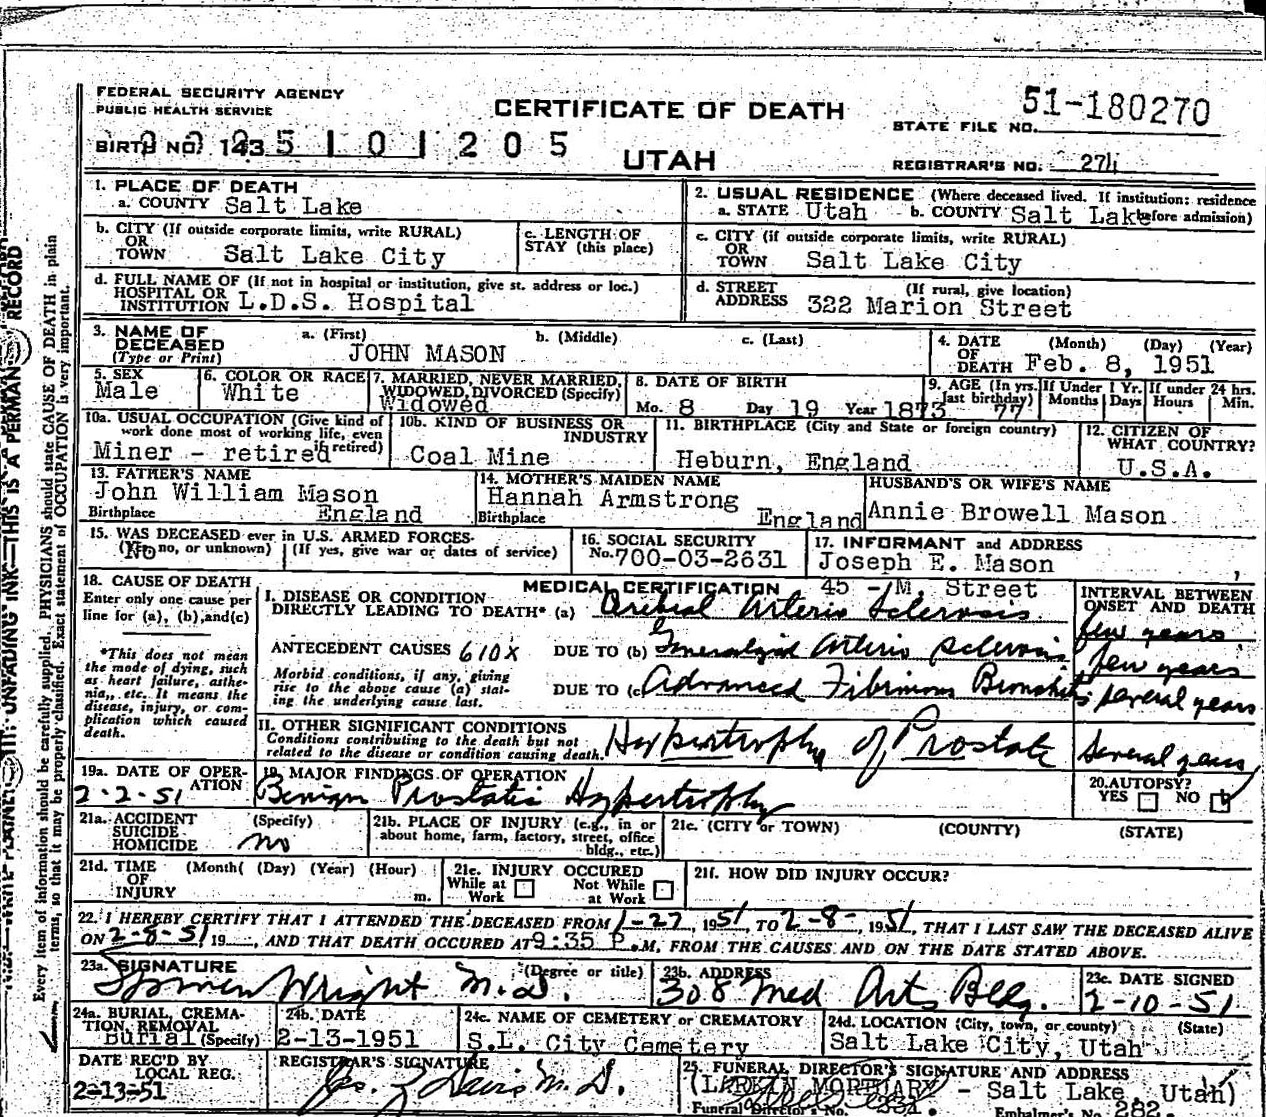 FEDERAL SECURITY AGENCY
PUBLIC HEALTH SERVICE
CERTIFICATE OF DEATH
51-180270
STATE FILE NO.
BIRTH NO. 143
5 1 0 1 2 0 5
UTAH
REGISTRAR'S NO. 274
1. PLACE OF DEATH
a. COUNTY Salt Lake
2. USUAL RESIDENCE (Where deceased lived. If institution: residence before admission)
a. STATE Utah b. COUNTY Salt Lake
b. CITY (If outside corporate limits, write RURAL)
OR
TOWN Salt Lake City
c. LENGTH OF
STAY (this place)
c. CITY (if outside corporate limits, write RURAL)
OR
TOWN Salt Lake City
d. FULL NAME OF (If not in hospital or institution, give st. address or loc.)
HOSPITAL OR
INSTITUTION L.D.S. Hospital
d. STREET (If rural, give location)
ADDRESS 322 Marion Street
3. NAME OF
DECEASED
(Type or Print)
a. (First) b. (Middle) c. (Last)
JOHN MASON
4. DATE (Month) (Day) (Year)
OF
DEATH Feb. 8, 1951
5. SEX
Male
6. COLOR OR RACE
White
7. MARRIED, NEVER MARRIED,
WIDOWED, DIVORCED (Specify)
Widowed
8. DATE OF BIRTH
Mo. 8 Day 19 Year 1873
9. AGE (In yrs.
last birthday)
77
If Under 1 Yr.
Months Days
If under 24 hrs.
Hours Min.
10a. USUAL OCCUPATION (Give kind of
work done most of working life, even
if retired)
Miner - retired
10b. KIND OF BUSINESS OR
INDUSTRY
Coal Mine
11. BIRTHPLACE (City and State or foreign country)
Heburn, England
12. CITIZEN OF
WHAT COUNTRY?
U.S.A.
13. FATHER'S NAME
John William Mason
Birthplace England
14. MOTHER'S MAIDEN NAME
Hannah Armstrong
Birthplace England
HUSBAND'S OR WIFE'S NAME
Annie Browell Mason
15. WAS DECEASED ever in U.S. ARMED FORCES
no, or unknown) (If yes, give war or dates of service)
No
16. SOCIAL SECURITY
No. 700-03-2631
17. INFORMANT and ADDRESS
Joseph E. Mason
45 - M. Street
18. CAUSE OF DEATH
Enter only one cause per
line for (a), (b), and (c)
*This does not mean
the mode of dying, such
as heart failure, asthe-
nia, etc. It means the
disease, injury, or com-
plication which caused
death.
MEDICAL CERTIFICATION
INTERVAL BETWEEN
ONSET AND DEATH
I. DISEASE OR CONDITION
DIRECTLY LEADING TO DEATH* (a) Cerebral Arterio Sclerosis
few years
ANTECEDENT CAUSES 610X DUE TO (b) Generalized Arterio Sclerosis
few years
Morbid conditions, if any, giving
rise to the above cause (a) stat-
ing the underlying cause last.
DUE TO (c) Advanced Fibrinous Bronchitis
several years
II. OTHER SIGNIFICANT CONDITIONS
Conditions contributing to the death but not
related to the disease or condition causing death.
Hypertrophy of Prostate
several years
19a. DATE OF OPER-
ATION
2-2-51
19. MAJOR FINDINGS OF OPERATION
Benign Prostatic Hypertrophy
20. AUTOPSY?
YES NO
21a. ACCIDENT (Specify)
SUICIDE
HOMICIDE no
21b. PLACE OF INJURY (e.g., in or
about home, farm, factory, street, office
bldg., etc.)
21c. (CITY or TOWN) (COUNTY) (STATE)
21d. TIME (Month) (Day) (Year) (Hour)
OF
INJURY m.
21e. INJURY OCCURED
While at Work Not While at Work
21f. HOW DID INJURY OCCUR?
22. I HEREBY CERTIFY THAT I ATTENDED THE DECEASED FROM 1-27, 1951, TO 2-8-, 1951, THAT I LAST SAW THE DECEASED ALIVE
ON 2-8-51 19 , AND THAT DEATH OCCURED AT 9:35 P.M, FROM THE CAUSES AND ON THE DATE STATED ABOVE.
23a. SIGNATURE (Degree or title)
Wright M.D.
23b. ADDRESS
308 Med Arts Bldg.
23c. DATE SIGNED
2-10-51
24a. BURIAL, CREMA-
TION, REMOVAL
(Specify)
Burial
24b. DATE
2-13-1951
24c. NAME OF CEMETERY or CREMATORY
S.L. City Cemetery
24d. LOCATION (City, town, or county) (State)
Salt Lake City, Utah
DATE REC'D BY
LOCAL REG.
2-13-51
REGISTRAR'S SIGNATURE
M.D.
25. FUNERAL DIRECTOR'S SIGNATURE AND ADDRESS
(LARKIN MORTUARY - Salt Lake, Utah)
Funeral Director's No.
Embalmer's No. 282
UNFADING INK—THIS IS A PERMANENT RECORD
Every item of information should be carefully supplied. PHYSICIANS should state CAUSE OF DEATH in plain
terms, so that it may be properly classified. Exact statement of OCCUPATION is very important.